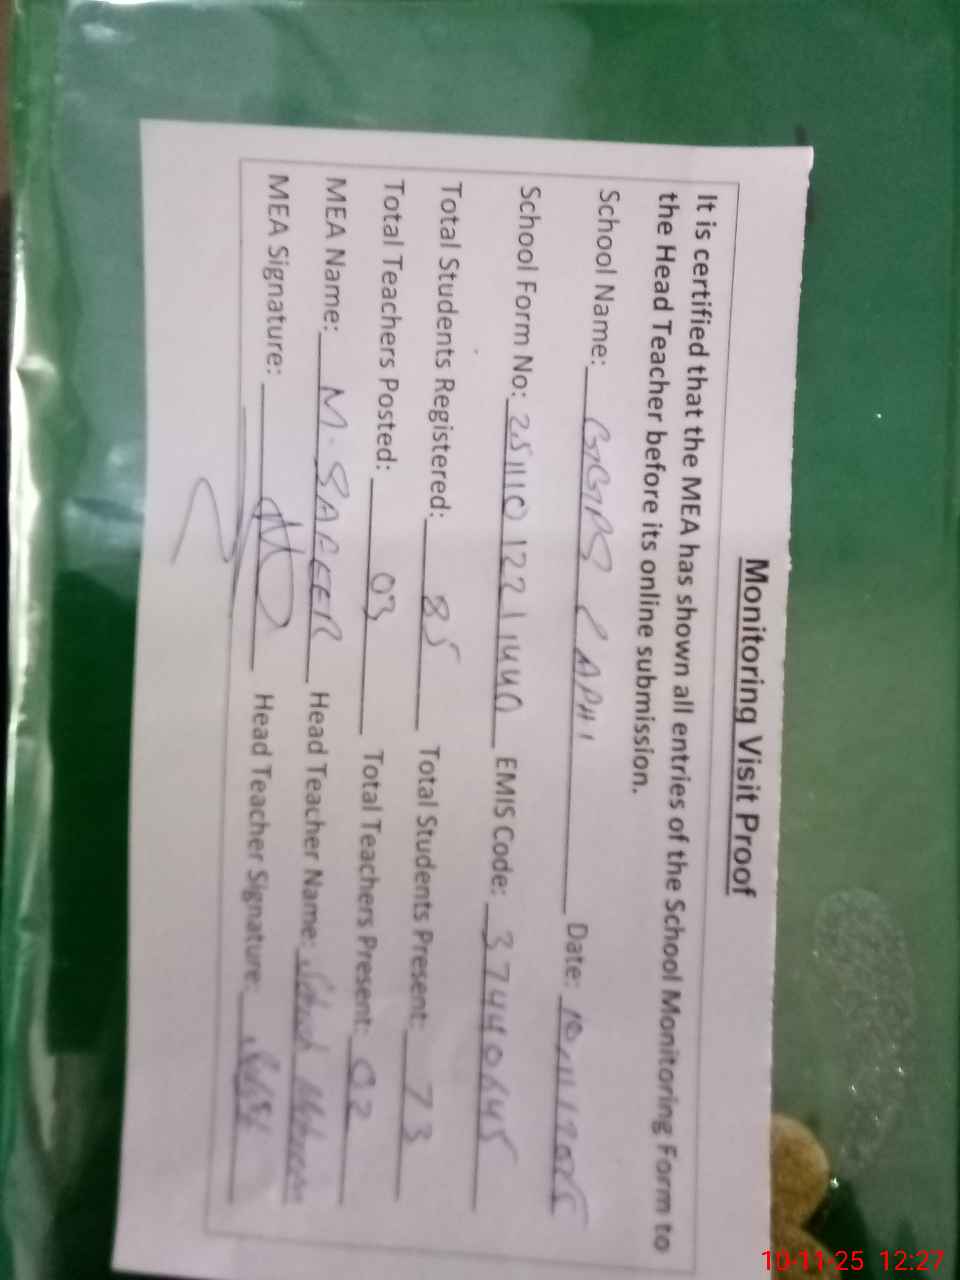 Monitoring Visit Proof
It is certified that the MEA has shown all entries of the School Monitoring Form to
the Head Teacher before its online submission.
School Name: GGPS LAPHI Date: 10/11/2025
School Form No: 251110 1221440 EMIS Code: 37440645
Total Students Registered: 85 Total Students Present: 73
Total Teachers Posted: 03 Total Teachers Present: 02
MEA Name: M. SAFEER Head Teacher Name:
MEA Signature: Head Teacher Signature:
10-11-25 12:27